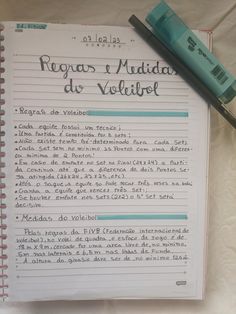 07/02/23
Regras e Medidas
do Voleibol
• Regras do Voleibol
• Cada equipe possui um técnico;
• Uma partida é constituída por 5 sets;
• Não existe tempo pré-determinado para cada set;
• Cada set tem no mínimo 25 pontos com uma diferen-
ça mínima de 2 pontos;
• Em caso de empate no set no final (24x24) a parti-
da continua até que a diferença de dois pontos se-
ja atingida (26x24, 27x25, etc);
• Após o saque a equipe só pode tocar três vezes na bola;
• Ganha a equipe que vencer três set;
• Se houver empate nos sets (2x2) o 5° set será
decisivo.
• Medidas do Voleibol
Pelas regras da FIVB (Federação internacional de
voleibol), no vôlei de quadra, o espaço de jogo é de
18 m x 9 m, cercado por uma área livre de no mínimo
5 m nas laterais e 6,5 m nas linhas de fundo.
A altura do ginásio deve ser de no mínimo 12,5 m